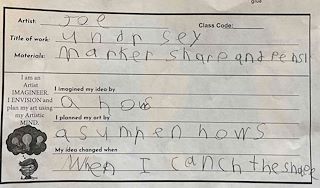 glue
Artist: Joe Class Code:
Title of work: undr sey
Materials: Marker share and Pensl
I am an
Artist
IMAGINEER.
I ENVISION and
plan my art using
my Artistic
MIND.
I imagined my idea by
a hows
I planned my art by
a sumpen hows
My idea changed when
When I canch the shape